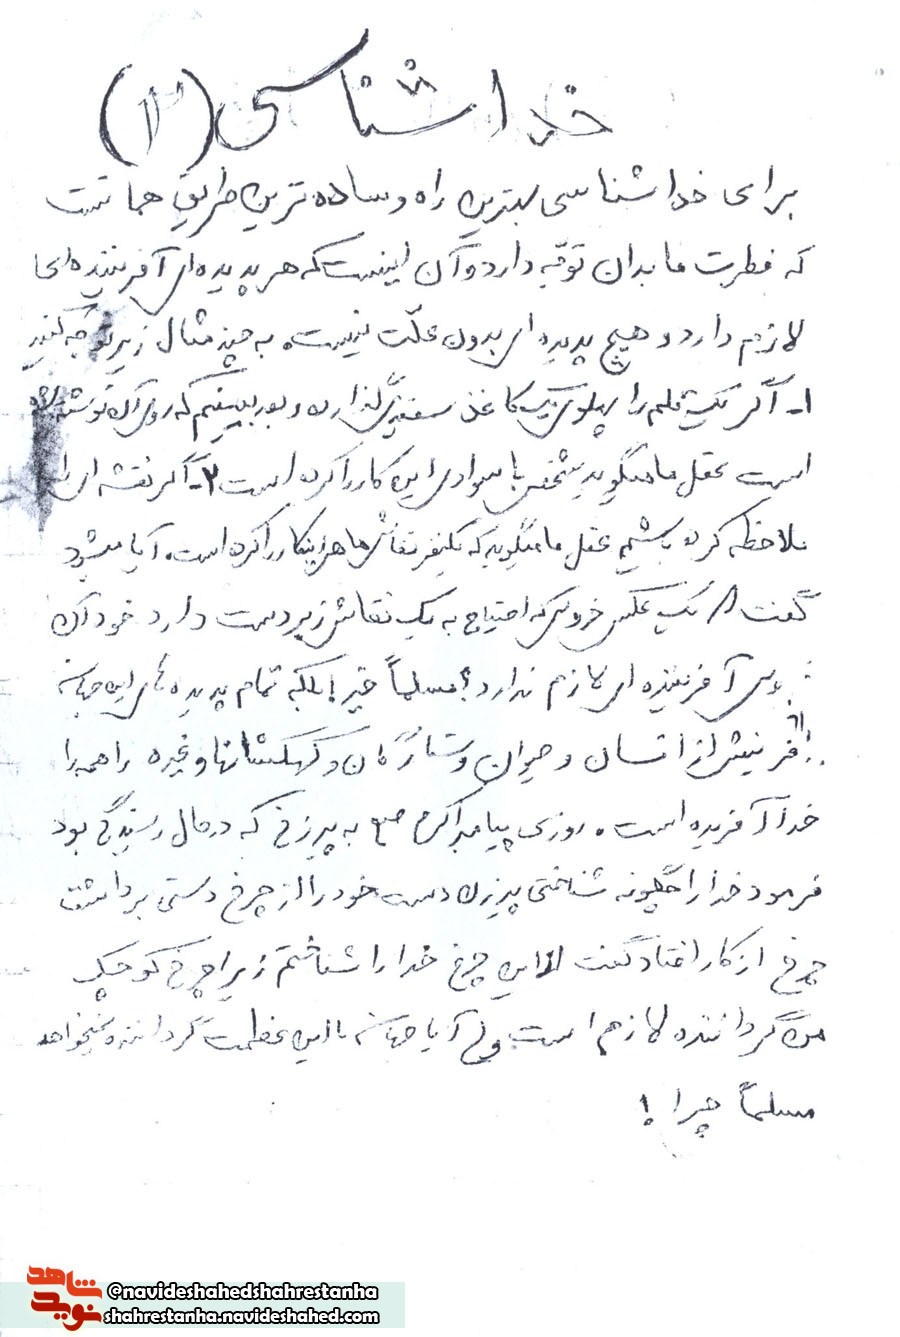 خداشناسی (۲)
برای خداشناسی بهترین راه و ساده ترین طریق همانست
که فطرت ما بدان توجّه دارد و آن اینست که هر پدیده ای آفریننده ای
لازم دارد و هیچ پدیده ای بدون علّت نیست. به چند مثال زیر توجه کنید
۱- اگر یک قلم را پهلوی یک کاغذ سفیدی گذارده و بعد ببینیم که روی آن نوشته شده
است عقل ما میگوید شخص با سوادی این کار را کرده است ۲- اگر نقشه ای را
ملاحظه کرده باشیم عقل ما میگوید که یکنفر نقاش ماهر اینکار را کرده است. آیا میشود
گفت یک عکس خروس که احتیاج به یک نقاش زبردست دارد خود آن
خروس آفریننده ای لازم ندارد؟ مسلماً خیر! بلکه تمام پدیده های این جهان
آفرینش از انسان و حیوان و ستارگان و کهکشانها و غیره را همه را
خدا آفریده است. روزی پیامبر اکرم صع به پیرزنی که در حال ریسندگی بود
فرمود خدا را چگونه شناختی پیرزن دست خود را از چرخ دستی برداشت
چرخ از کار افتاد گفت از این چرخ خدا را شناختم زیرا چرخ کوچک
من گرداننده لازم است ولی آیا جهان با این عظمت گرداننده نمیخواهد
مسلماً چرا !
شاهد
نوید
@navideshahedshahrestanha
shahrestanha.navideshahed.com